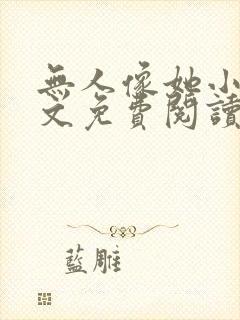 無人像她小
文免費閱讀
藍雕